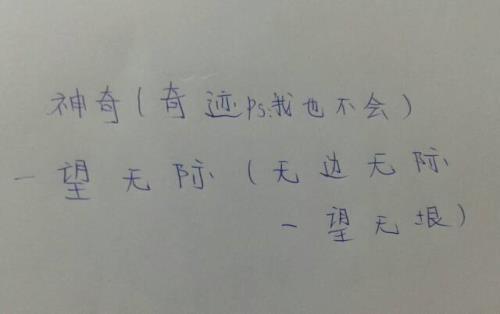 神奇(奇迹ps:我也不会)
一望无际(无边无际
一望无垠)